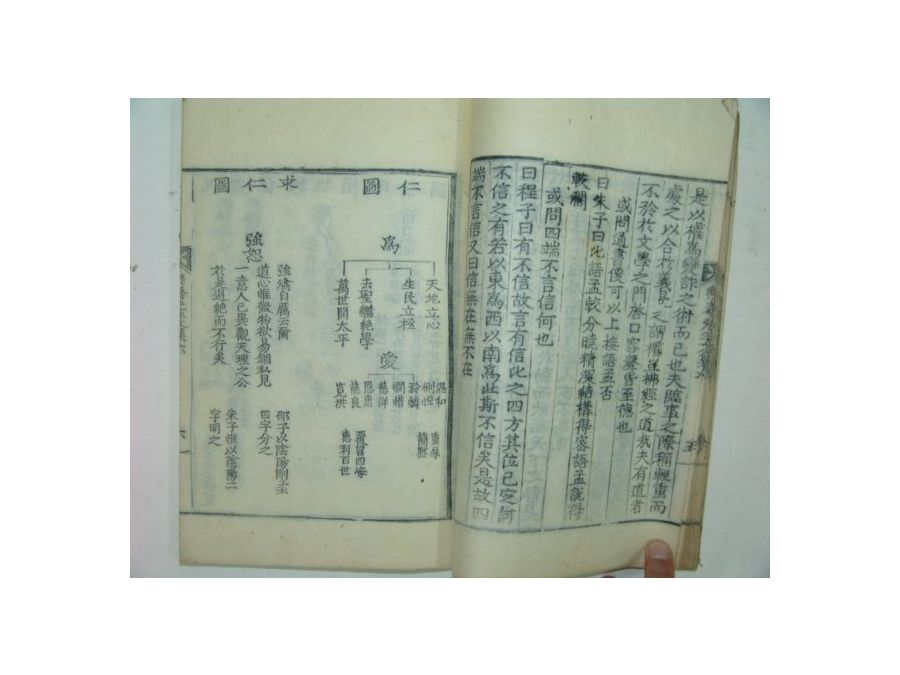 是以權爲變詐之術而已也夫臨事之際稱輕重而
處之以合於義是之謂權豈拂經之道哉夫有道者
不矜於文學之門啓口容聲皆至德也
或問通書便可以上接語孟否
曰朱子曰比語孟較分曉精深結構得密語孟說得
較闊
或問四端不言信何也
曰程子曰有不信故言有信比之四方其位已定何
不信之有若以東爲西以南爲北斯不信矣是故四
端不言信又曰信無在無不在
仁圖
爲
天地立心
生民立極
去聖繼絶學
萬世開太平
愛
溫和
惻怛
慈詳
恩惠
慈良
寬洪
重厚
簡默
覆冒四海
惠利百世
求仁圖
強恕
強矯自厲云爾
道心惟微物欲易錮私見
一意人己異觀天理之公
於是遏絶而不行矣
邵子以陰陽剛柔
四字分之
朱子惟以陰陽二
字明之